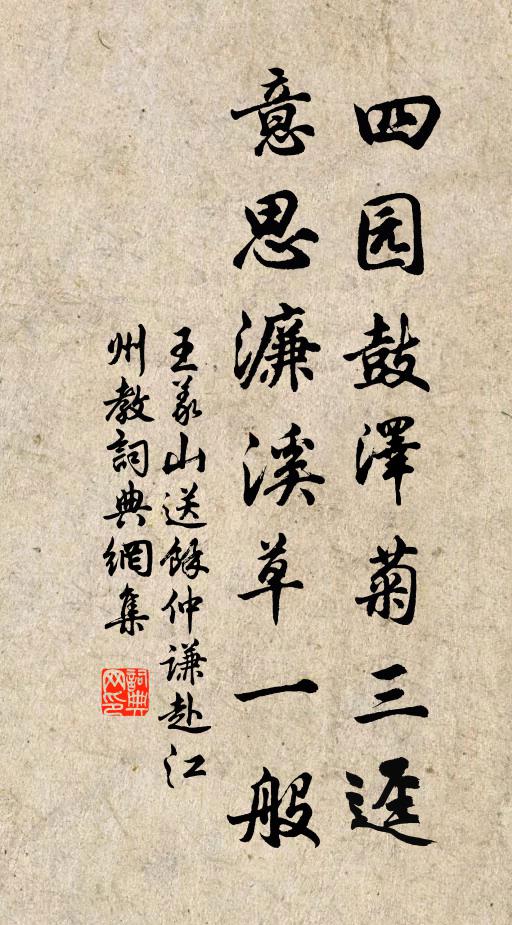 四园鼓澤菊三逕
意思濂溪草一般
王義山送餘仲謙赴江
州教詞典網集
詞典
网印